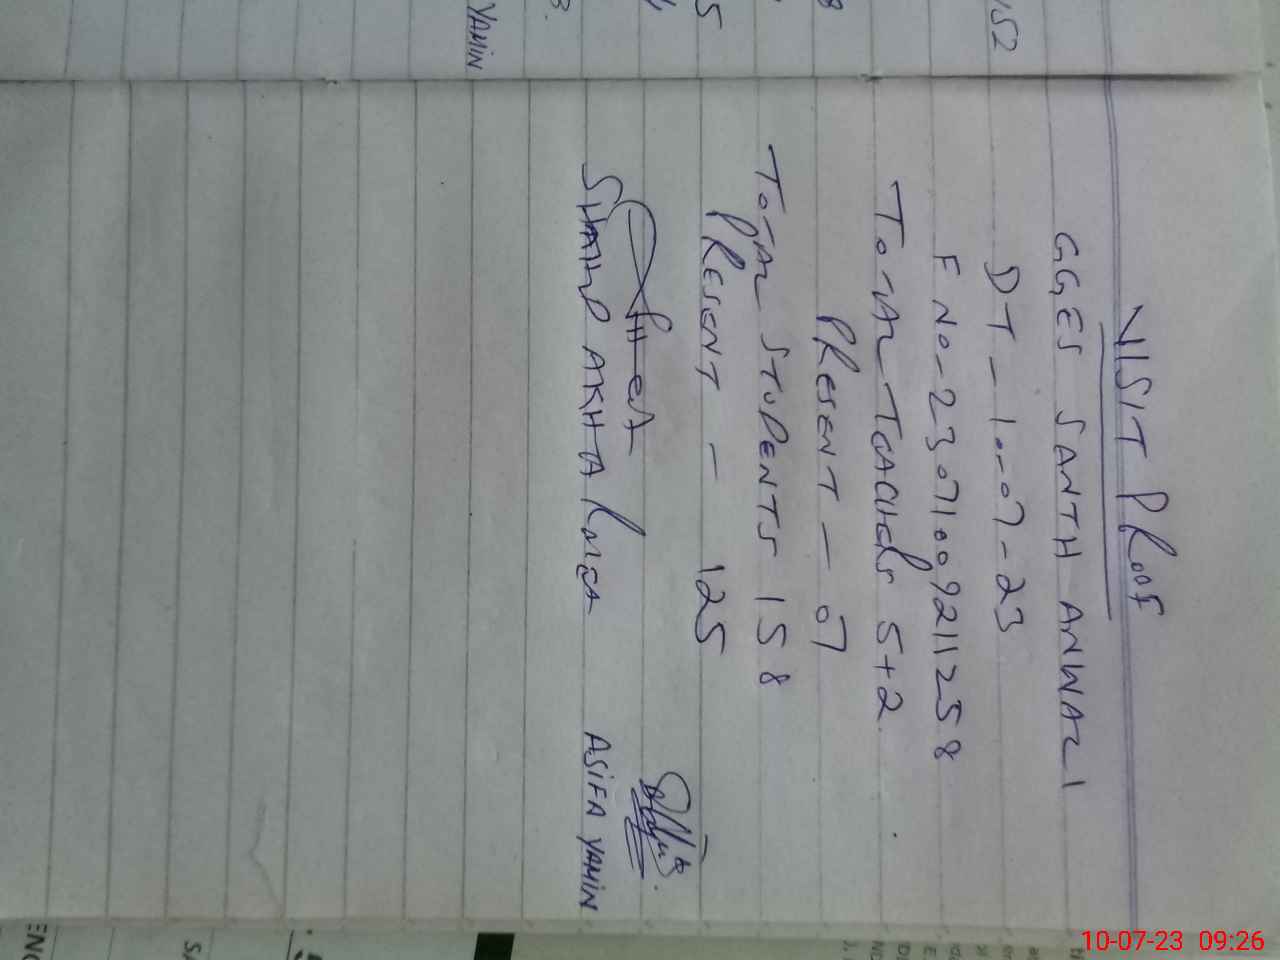 VISIT PROOF
GGES SANTH ANWAL 1
DT - 10-07-23
F NO-23071009211258
TOTAL TEACHERS 5+2
PRESENT - 07
TOTAL STUDENTS 158
PRESENT - 125
SHAHID AKHTAR
ASIFA YAMIN
YAMIN
10-07-23 09:26